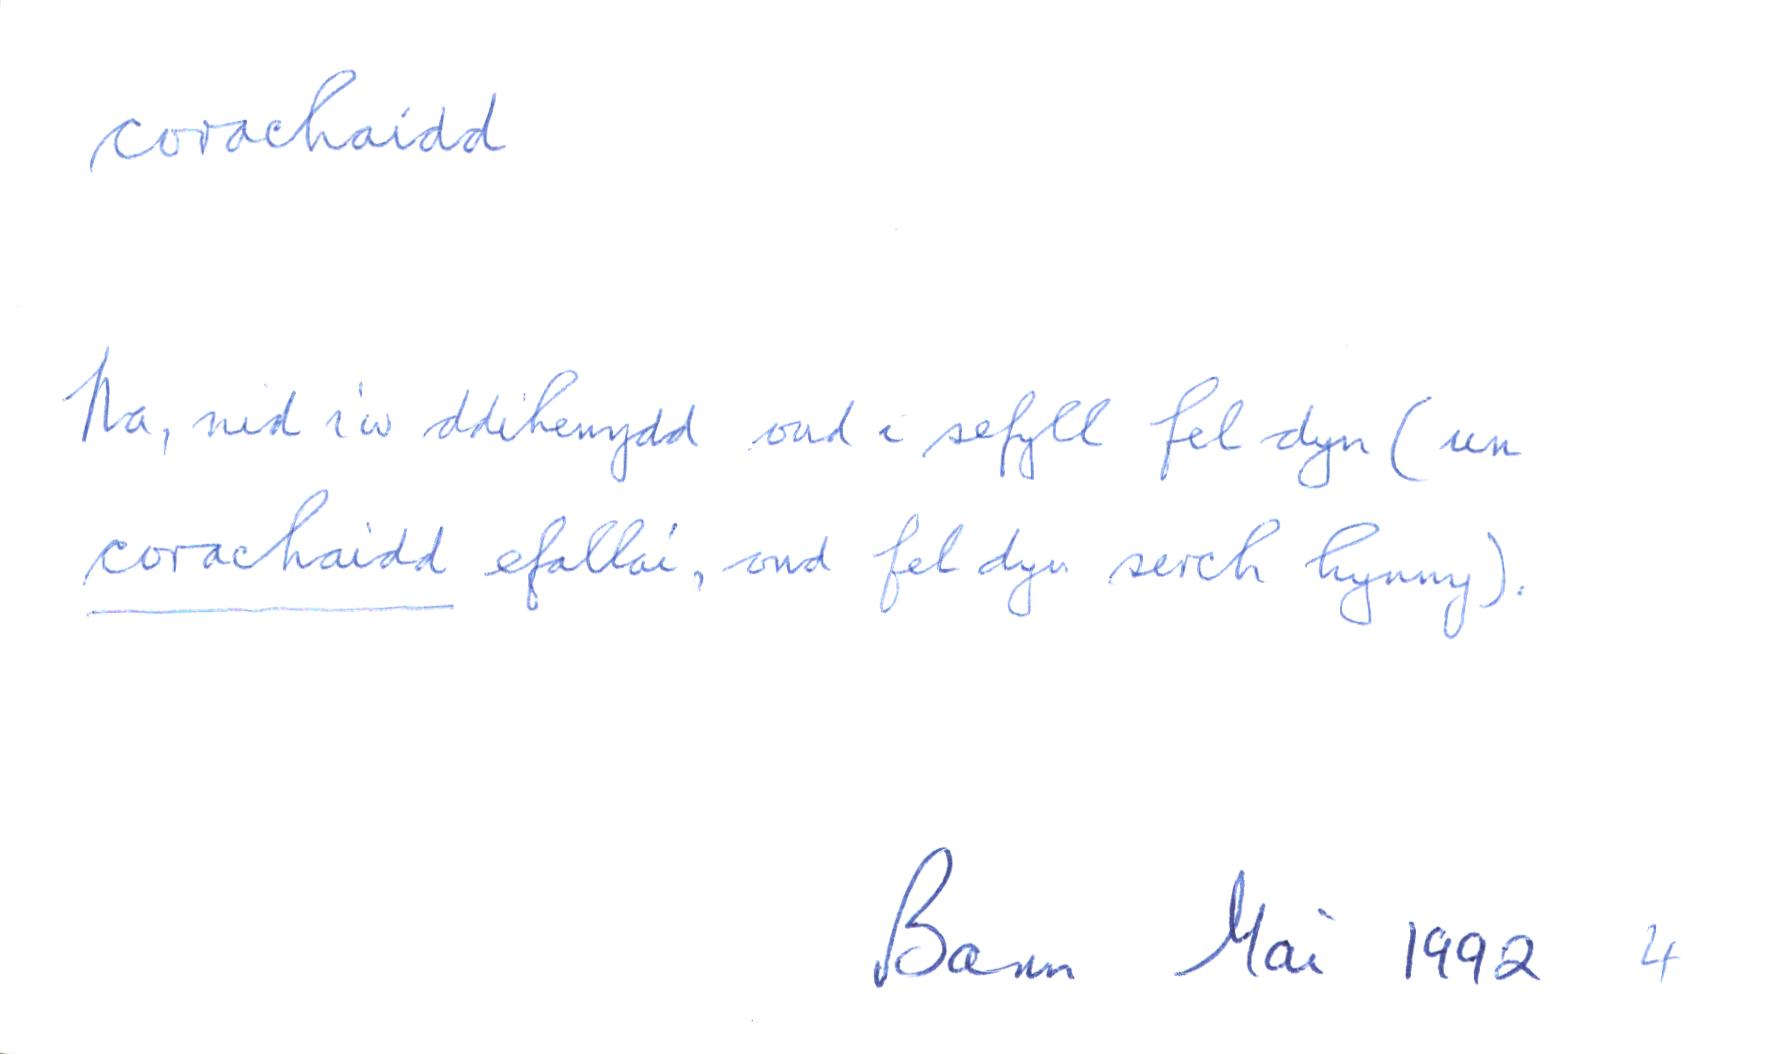 corachaidd
Na, nid i'w ddihenydd ond i sefyll fel dyn (un
corachaidd efallai, ond fel dyn serch hynny).
Barn Mai 1992 4